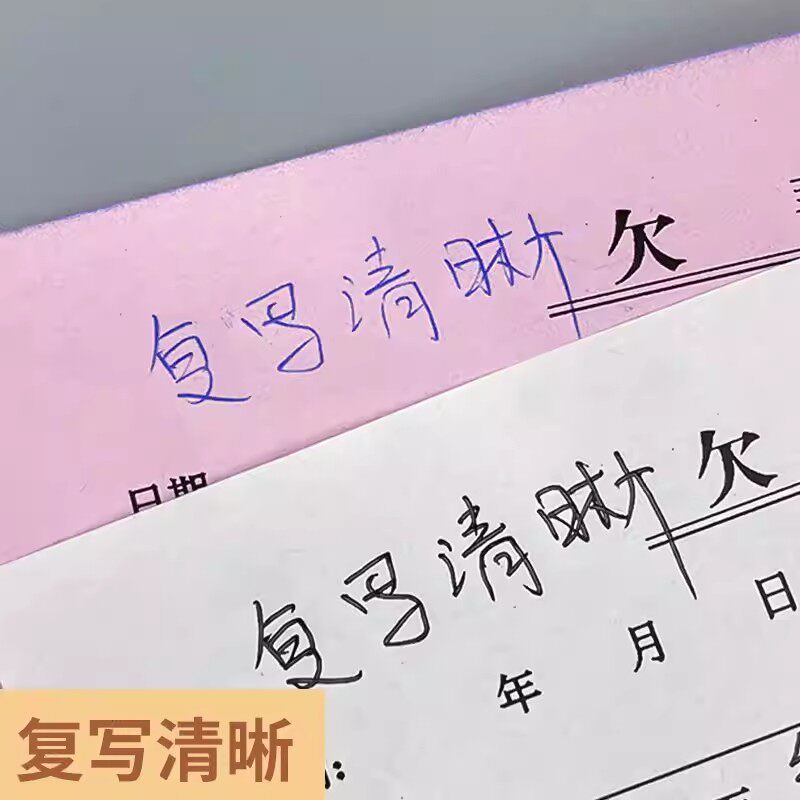 复写清晰 欠
日期
复写清晰 欠
年 月 日
复写清晰